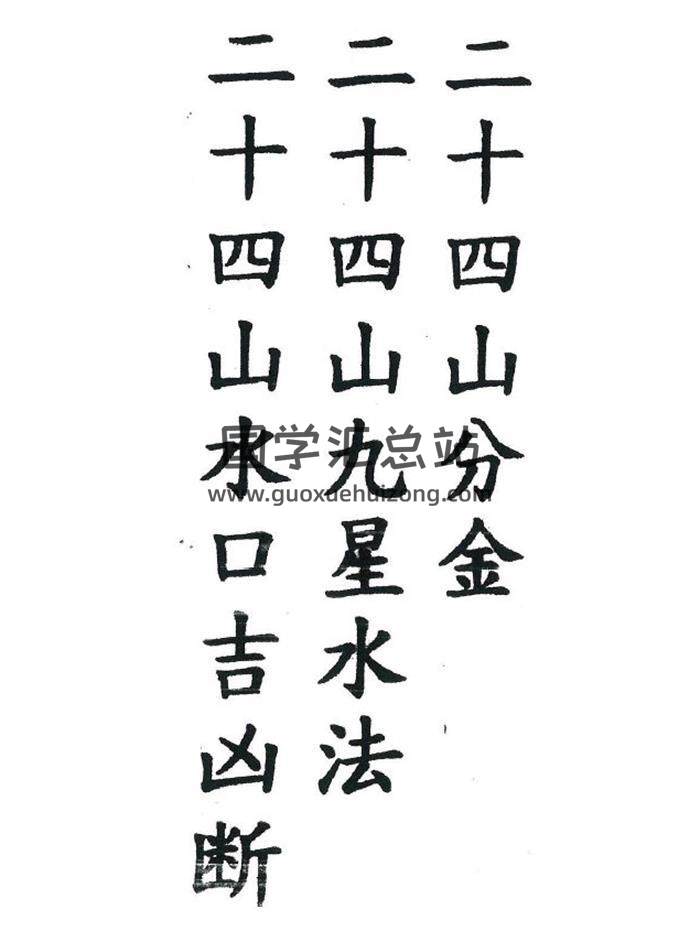 二十四山分金
二十四山九星水法
二十四山水口吉凶断
国学汇总站
www.guoxuehuizong.com